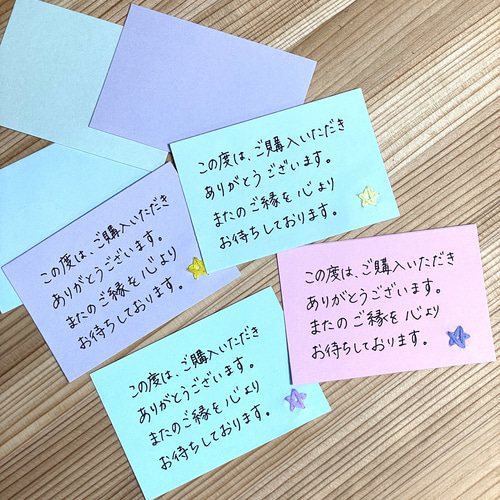 この度は、ご購入いただき
ありがとうございます。
またのご縁を心より
お待ちしております。
この度は、ご購入いただき
ありがとうございます。
またのご縁を心より
お待ちしております。
この度は、ご購入いただき
ありがとうございます。
またのご縁を心より
お待ちしております。
この度は、ご購入いただき
ありがとうございます。
またのご縁を心より
お待ちしております。